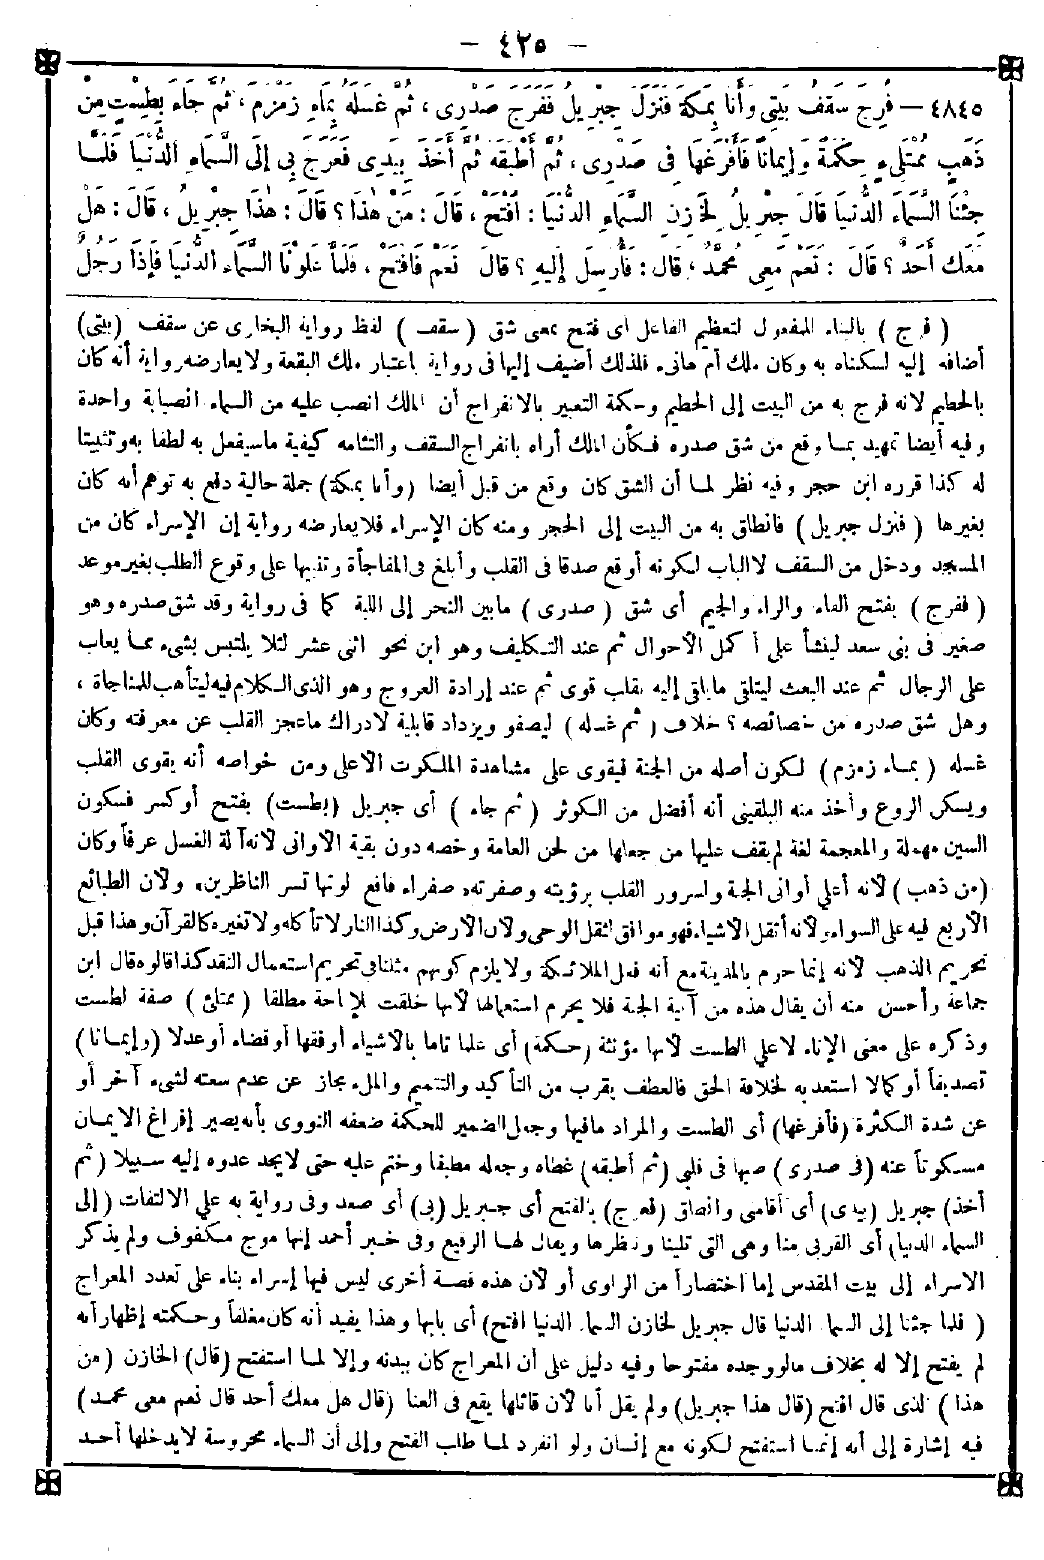 – ٤٢٥ –
٤٨٤٥ – فُرِجَ سَقْفُ بَيْتِي وَأَنَا بِمَكَّةَ فَنَزَلَ جِبْرِيلُ فَفَرَجَ صَدْرِى ، ثُمَّ غَسَلَهُ بِمَاءِ زَمْزَمَ ، ثُمَّ جَاءَ بِطَسْتٍ مِنْ
ذَهَبٍ مُمْتَلِىءٍ حِكْمَةً وَإِيمَاناً فَأَفْرَغَهَا فِى صَدْرِى ، ثُمَّ أَطْبَقَهُ ثُمَّ أَخَذَ بِيَدِى فَعَرَجَ بِى إِلَى السَّمَاءِ الدُّنْيَا فَلَمَّا
جِئْنَا السَّمَاءَ الدُّنْيَا قَالَ جِبْرِيلُ لِخَازِنِ السَّمَاءِ الدُّنْيَا : افْتَحْ ، قَالَ : مَنْ هٰذَا ؟ قَالَ : هٰذَا جِبْرِيلُ ، قَالَ : هَلْ
مَعَكَ أَحَدٌ ؟ قَالَ : نَعَمْ مَعِى مُحَمَّدٌ ، قَالَ : فَأُرْسِلَ إِلَيْهِ ؟ قَالَ نَعَمْ فَافْتَحْ ، فَلَمَّا عَلَوْنَا السَّمَاءَ الدُّنْيَا فَإِذَا رَجُلٌ
( فرج ) بالبناء للمفعول لتعظيم الفاعل أى فتح بمعنى شق ( سقف ) لفظ رواية البخارى عن سقف (بيتى)
أضافه إليه لسكناه به وكان ملك أم هانىء فلذلك أضيف إليها فى رواية باعتبار ملك البقعة ولا يعارضه رواية أنه كان
بالحطيم لأنه فرج به من البيت إلى الحطيم وحكمة التعبير بالانفراج أن الملك انصب عليه من السماء انصبابة واحدة
وفيه أيضا تمهيد بما وقع من شق صدره فكأن الملك أراه بانفراج السقف والتئامه كيفية ما سيفعل به لطفا به وتثبيتا
له كذا قرره ابن حجر وفيه نظر لما أن الشق كان وقع من قبل أيضا (وأنا بمكة) جملة حالية دفع به توهم أنه كان
بغيرها ( فنزل جبريل ) فانطلق به من البيت إلى الحجر ومنه كان الإسراء فلا يعارضه رواية إن الإسراء كان من
المسجد ودخل من السقف لا الباب لكونه أوقع صدقا فى القلب وأبلغ فى المفاجأة وتنبيها على وقوع الطلب بغير موعد
( ففرج ) بفتح الفاء والراء والجيم أى شق ( صدرى ) ما بين النحر إلى اللبة كما فى رواية وقد شق صدره وهو
صغير فى بنى سعد لينشأ على أكمل الأحوال ثم عند التكليف وهو ابن نحو اثنى عشر لئلا يلتبس بشىء مما يعاب
على الرجال ثم عند البعث ليتلقى ما يلقى إليه بقلب قوى ثم عند إرادة العروج وهو الذى الكلام فيه ليتأهب للمناجاة ،
وهل شق صدره من خصائصه ؟ خلاف ( ثم غسله ) ليصفو ويزداد قابلية لادراك ما عجز القلب عن معرفته وكان
غسله ( بماء زمزم ) لكون أصله من الجنة فيقوى على مشاهدة الملكوت الأعلى ومن خواصه أنه يقوى القلب
ويسكن الروع وأخذ منه البلقينى أنه أفضل من الكوثر ( ثم جاء ) أى جبريل (بطست) بفتح أو كسر فسكون
السين مهملة والمعجمة لغة لم يقف عليها من جعلها من لحن العامة وخصه دون بقية الأوانى لأنه آلة الغسل عرفاً وكان
(من ذهب) لأنه أعلى أوانى الجنة ولسرور القلب برؤيته وصفرته، صفراء فاقع لونها تسر الناظرين، ولأن الطبائع
الأربع فيه على السواء ولأنه أثقل الأشياء فهو موافق لثقل الوحى ولأن الأرض وكذا النار لا تأكله ولا تغيره كالقرآن وهذا قبل
تحريم الذهب لأنه إنما حرم بالمدينة مع أنه فعل الملائكة ولا يلزم كونهم مثلنا فى تحريم استعمال النقد كذا قالوه قال ابن
جماعة وأحسن منه أن يقال هذه من آنية الجنة فلا يحرم استعمالها لأنها خلقت للإباحة مطلقا ( ممتلئ ) صفة لطست
وذكره على معنى الإناء لا على الطست لأنها مؤنثة (حكمة) أى علما تاما بالأشياء أو فقها أو قضاء أو عدلا (وإيمانا)
تصديقاً أو كمالا استعد به لخلافة الحق فالعطف يقرب من التأكيد والتتميم والملء مجاز عن عدم سعته لشىء آخر أو
عن شدة الكثرة (فأفرغها) أى الطست والمراد ما فيها وجعل الضمير للحكمة ضعفه النووى بأنه يصير إفراغ الإيمان
مسكوتاً عنه (فى صدرى) صبها فى قلبى (ثم أطبقه) غطاه وجعله مطبقا وختم عليه حتى لا يجد عدوه إليه سبيلا (ثم
أخذ) جبريل (بيدى) أى أقامنى وانطلق (فعرج) بالفتح أى جبريل (بى) أى صعد وفى رواية به على الالتفات (إلى
السماء الدنيا) أى القربى منا وهى التى تلينا وننظرها ويقال لها الرفيع وفى خبر أحمد إنها موج مكفوف ولم يذكر
الاسراء إلى بيت المقدس إما اختصاراً من الراوى أو لأن هذه قصة أخرى ليس فيها إسراء بناء على تعدد المعراج
( فلما جئنا إلى السماء الدنيا قال جبريل لخازن السماء الدنيا افتح) أى بابها وهذا يفيد أنه كان مغلقاً وحكمته إظهار أنه
لم يفتح إلا له بخلاف ما لو وجده مفتوحا وفيه دليل على أن المعراج كان ببدنه وإلا لما استفتح (قال) الخازن (من
هذا ) الذى قال افتح (قال هذا جبريل) ولم يقل أنا لأن قائلها يقع فى العنا (قال هل معك أحد قال نعم معى محمد)
فيه إشارة إلى أنه إنما استفتح لكونه مع إنسان ولو انفرد لما طلب الفتح وإلى أن السماء محروسة لا يدخلها أحد